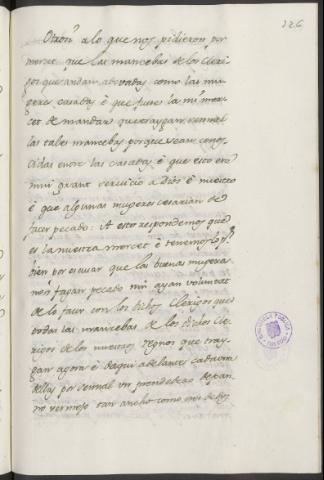 326
Otrosi a lo que nos pidieron por
merced que las mancebas de los Cleri
gos que andan adovadas como las mu
geres casadas è que fuese la mi mer-
cet de mandar que traygan sennal
las tales mancebas porque sean conos-
cidas entre las casadas è que esto era
mui grant servicio a Dios è nuestro
è que algunas mugeres cesarian de
facer pecado: A esto respondemos que
es la nuestra mercet è tenemos lo pr.
bien por escusar que las buenas mugeres
non fagan pecado nin ayan voluntat
de lo facer con los dichos Clerigos que
todas las mancebas de los dichos Cle
rigos de los nuestros regnos que tray-
gan agora è daqui adelante cada una
dellas por sennal un prendedero de pan-
no vermejo tan ancho como tres dedos
BIBLIOTECA PUBLICA
TOLEDO